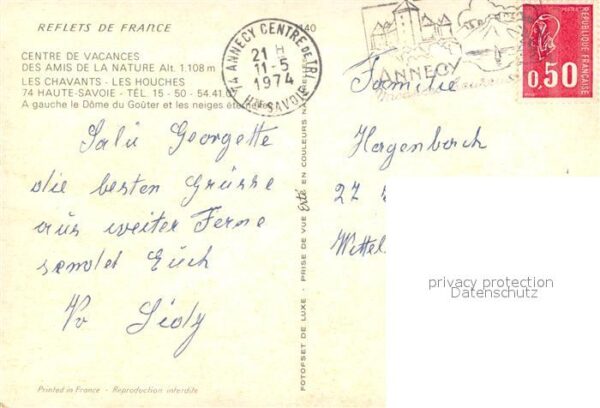 REFLETS DE FRANCE
1140
CENTRE DE VACANCES
DES AMIS DE LA NATURE Alt. 1.108 m
LES CHAVANTS - LES HOUCHES
74 HAUTE-SAVOIE - TÉL. 15 - 50 - 54.41.07
A gauche le Dôme du Goûter et les neiges éternelles
74 ANNECY CENTRE DE TRI
21 H
11-5
1974
HTE SAVOIE
ANNECY
RÉPUBLIQUE FRANÇAISE
0,50
Salü Georgette
die besten Grüsse
aus weiter Ferne
sendet Euch
Familie
Hagenbach
27
Wittel
FOTOFSET DE LUXE - PRISE DE VUE Erté EN COULEURS
privacy protection
Datenschutz
Printed in France - Reproduction interdite